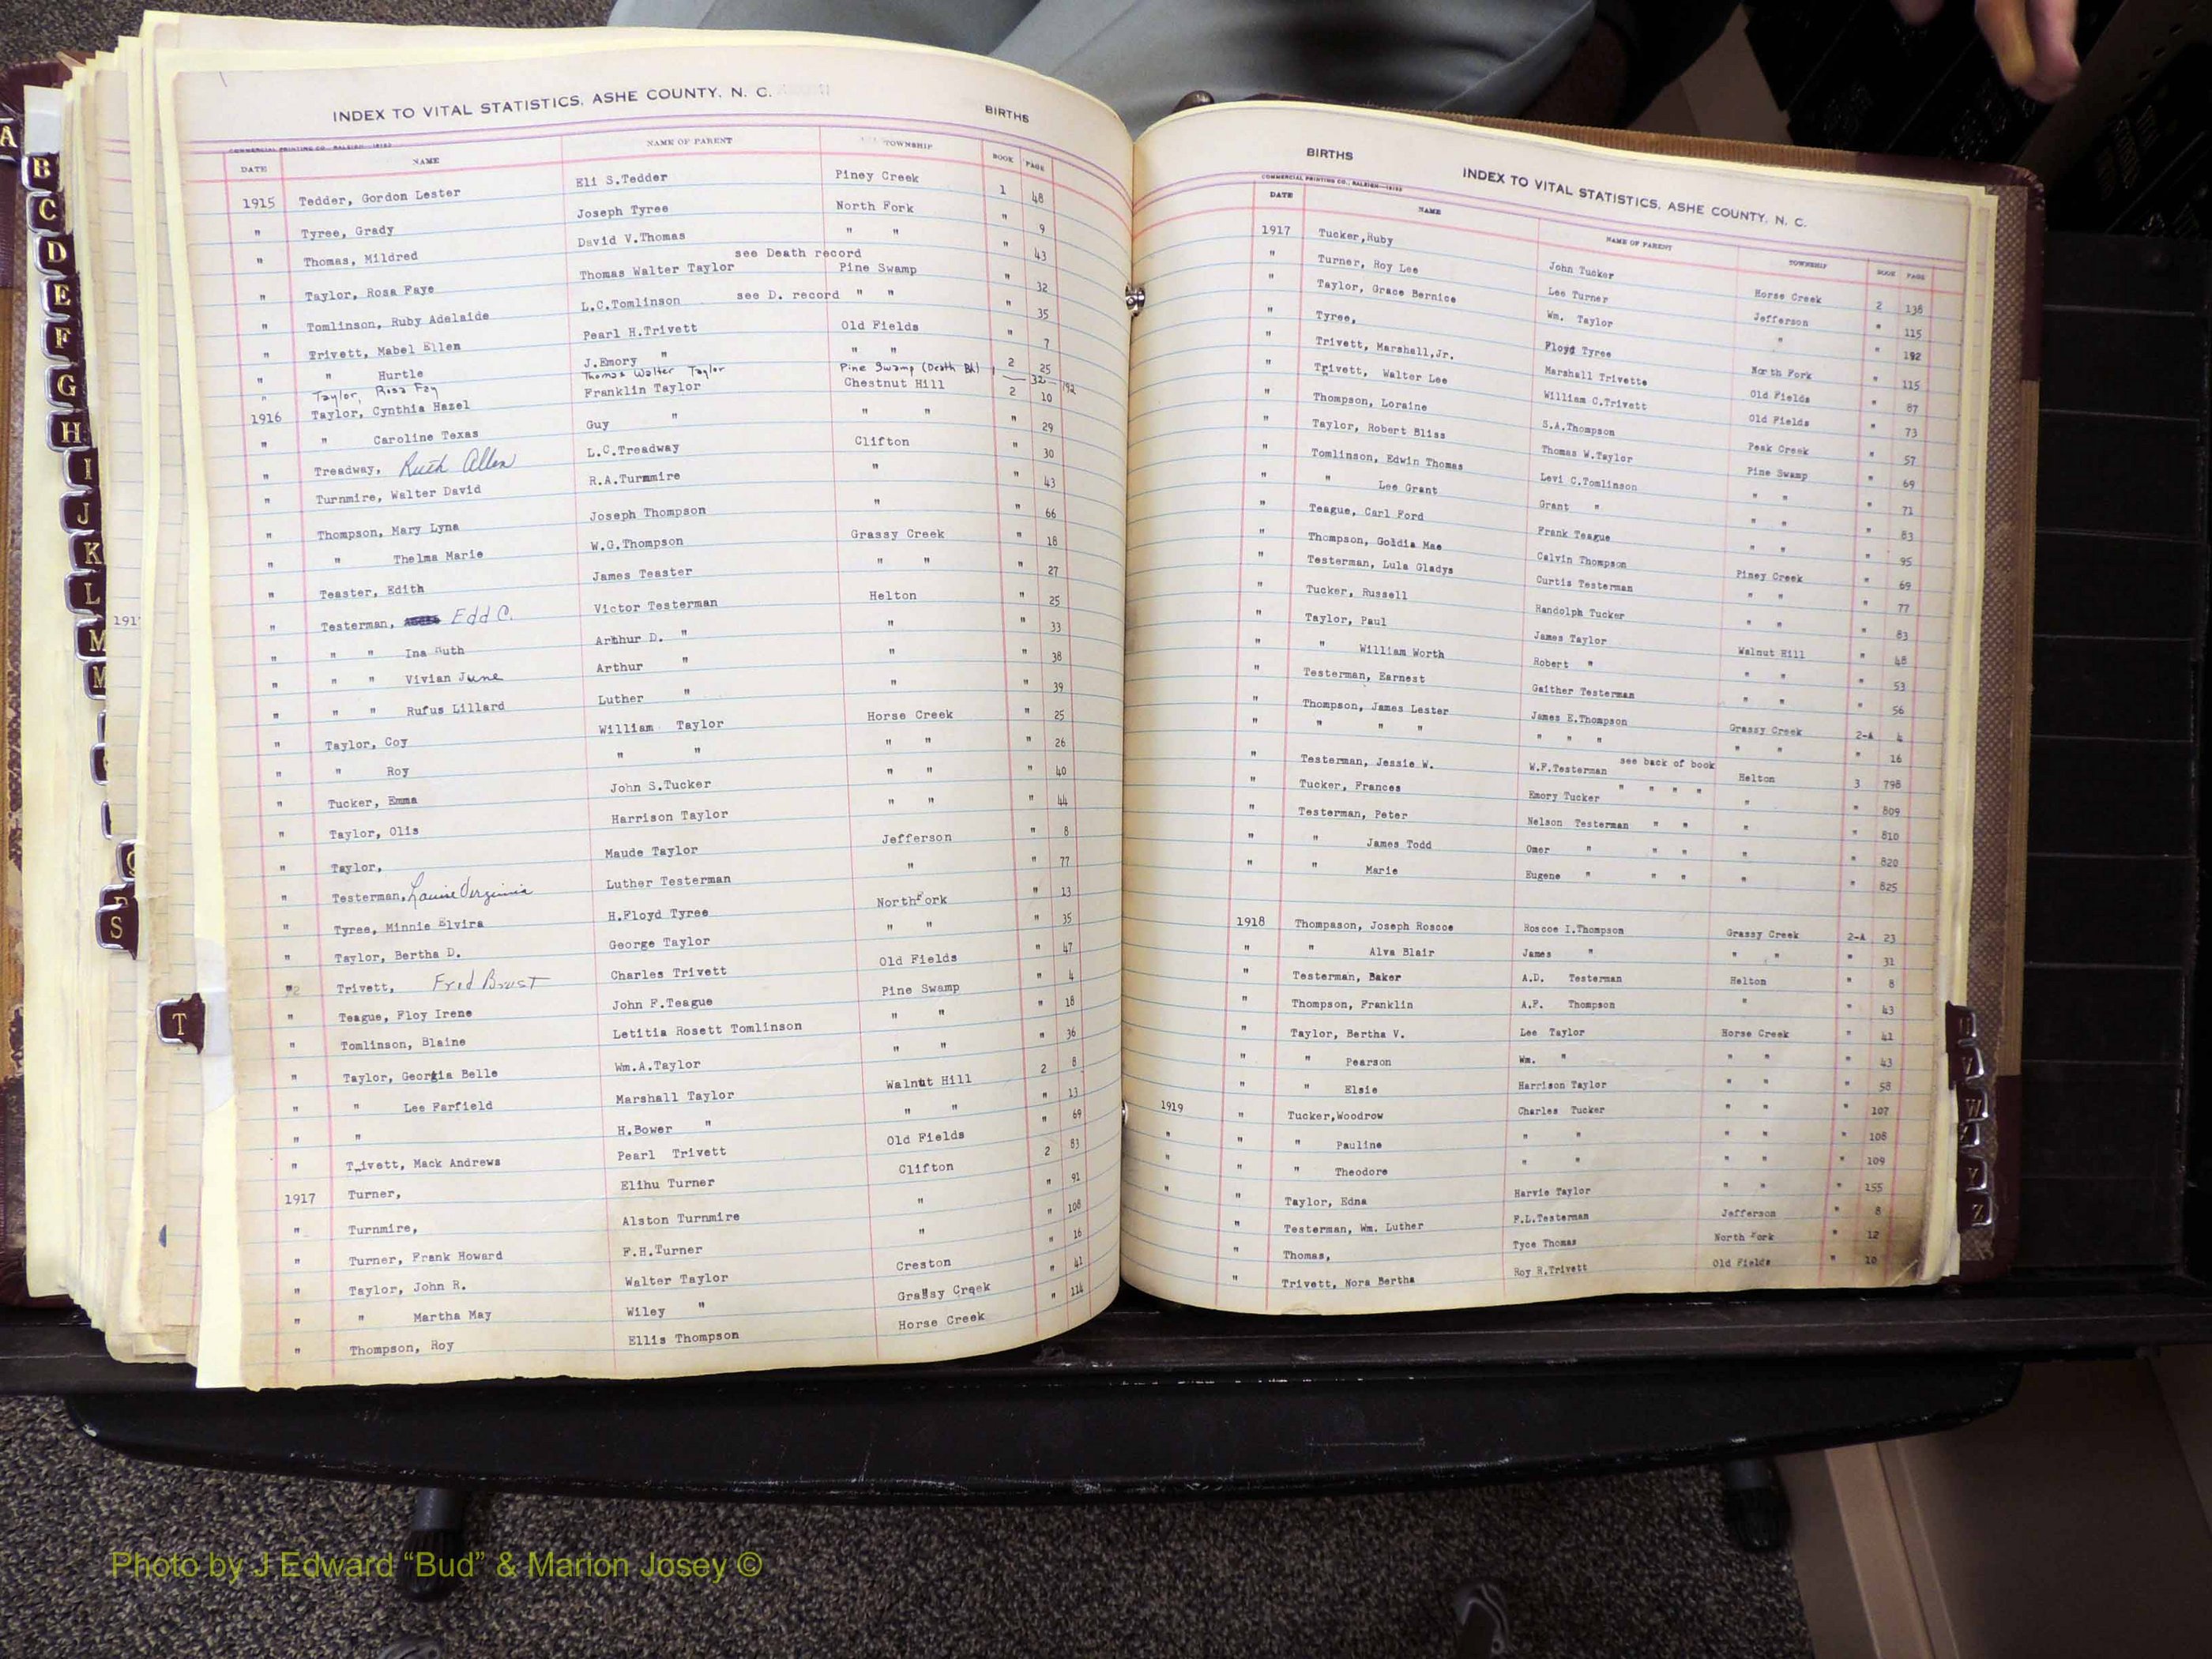 INDEX TO VITAL STATISTICS, ASHE COUNTY, N. C. BIRTHS
COMMERCIAL PRINTING CO., RALEIGH
DATE NAME NAME OF PARENT TOWNSHIP BOOK PAGE
1915 Tedder, Gordon Lester Eli S.Tedder Piney Creek 1 48
" Tyree, Grady Joseph Tyree North Fork " 9
" Thomas, Mildred David V.Thomas " " " 43
see Death record
" Taylor, Rosa Faye Thomas Walter Taylor Pine Swamp " 32
" Tomlinson, Ruby Adelaide L.C.Tomlinson see D. record " " " 35
" Trivett, Mabel Ellen Pearl H.Trivett Old Fields " 7
" " Hurtle J.Emory " " " 2 25
" Taylor, Rosa Fay Thomas Walter Taylor Pine Swamp (Death Bk) 1 32 192
1916 Taylor, Cynthia Hazel Franklin Taylor Chestnut Hill 2 10
" " Caroline Texas Guy " " " " 29
" Treadway, Ruth Allen L.C.Treadway Clifton " 30
" Turnmire, Walter David R.A.Turnmire " " 43
" Thompson, Mary Lyna Joseph Thompson " " 66
" " Thelma Marie W.G.Thompson Grassy Creek " 18
" Teaster, Edith James Teaster " " " 27
" Testerman, Edd C. Victor Testerman Helton " 25
" " " Ina Ruth Arthur D. " " " 33
" " " Vivian June Arthur " " " 38
" " " Rufus Lillard Luther " " " 39
" Taylor, Coy William Taylor Horse Creek " 25
" " Roy " " " " " 26
" Tucker, Emma John S.Tucker " " " 40
" Taylor, Olis Harrison Taylor " " " 44
" Taylor, Maude Taylor Jefferson " 8
" Testerman, Louise Virginia Luther Testerman " " 77
" Tyree, Minnie Elvira H.Floyd Tyree NorthFork " 13
" Taylor, Bertha D. George Taylor " " " 35
" Trivett, Fred Charles Trivett Old Fields " 47
" Teague, Floy Irene John F.Teague Pine Swamp " 4
" Tomlinson, Blaine Letitia Rosett Tomlinson " " " 18
" Taylor, Georgia Belle Wm.A.Taylor " " " 36
" " Lee Farfield Marshall Taylor Walnut Hill 2 8
" " H.Bower " " " " 13
" Trivett, Mack Andrews Pearl Trivett Old Fields " 69
1917 Turner, Elihu Turner Clifton 2 83
" Turnmire, Alston Turnmire " " 91
" Turner, Frank Howard F.H.Turner " " 108
" Taylor, John R. Walter Taylor Creston " 16
" " Martha May Wiley " Grassy Creek " 41
" Thompson, Roy Ellis Thompson Horse Creek " 114
BIRTHS INDEX TO VITAL STATISTICS, ASHE COUNTY, N. C.
COMMERCIAL PRINTING CO., RALEIGH
DATE NAME NAME OF PARENT TOWNSHIP BOOK PAGE
1917 Tucker,Ruby John Tucker Horse Creek 2 138
" Turner, Roy Lee Lee Turner Jefferson " 115
" Taylor, Grace Bernice Wm. Taylor " " 192
" Tyree, Floyd Tyree North Fork " 115
" Trivett, Marshall,Jr. Marshall Trivette Old Fields " 87
" Trivett, Walter Lee William C.Trivett Old Fields " 73
" Thompson, Loraine S.A.Thompson Peak Creek " 57
" Taylor, Robert Bliss Thomas W.Taylor Pine Swamp " 69
" Tomlinson, Edwin Thomas Levi C.Tomlinson " " " 71
" " Lee Grant Grant " " " " 83
" Teague, Carl Ford Frank Teague " " " 95
" Thompson, Goldia Mae Calvin Thompson Piney Creek " 69
" Testerman, Lula Gladys Curtis Testerman " " " 77
" Tucker, Russell Randolph Tucker " " " 83
" Taylor, Paul James Taylor Walnut Hill " 48
" " William Worth Robert " " " " 53
" Testerman, Earnest Gaither Testerman " " " 56
" Thompson, James Lester James E.Thompson Grassy Creek 2-A 4
" " " " " " " " " " 16
" Testerman, Jessie W. W.F.Testerman see back of book Helton 3 798
" Tucker, Frances Emory Tucker " " " " " " 809
" Testerman, Peter Nelson Testerman " " " " 810
" " James Todd Omer " " " " " 820
" " Marie Eugene " " " " " 825
1918 Thompason, Joseph Roscoe Roscoe I.Thompson Grassy Creek 2-A 23
" " Alva Blair James " " " " 31
" Testerman, Baker A.D. Testerman Helton " 8
" Thompson, Franklin A.F. Thompson " " 43
" Taylor, Bertha V. Lee Taylor Horse Creek " 41
" " Pearson Wm. " " " " 43
" " Elsie Harrison Taylor " " " 58
1919 " Tucker,Woodrow Charles Tucker " " " 107
" " " Pauline " " " " " 108
" " " Theodore " " " " " 109
" " Taylor, Edna Harvie Taylor " " " 155
" Testerman, Wm. Luther F.L.Testerman Jefferson " 8
" Thomas, Tyce Thomas North Fork " 12
" Trivett, Nora Bertha Roy R.Trivett Old Fields " 10
A
B
C
D
E
F
G
H
I
J
K
L
M
M
S
T
191
V
W
Y
Z
Photo by J Edward “Bud” & Marion Josey ©